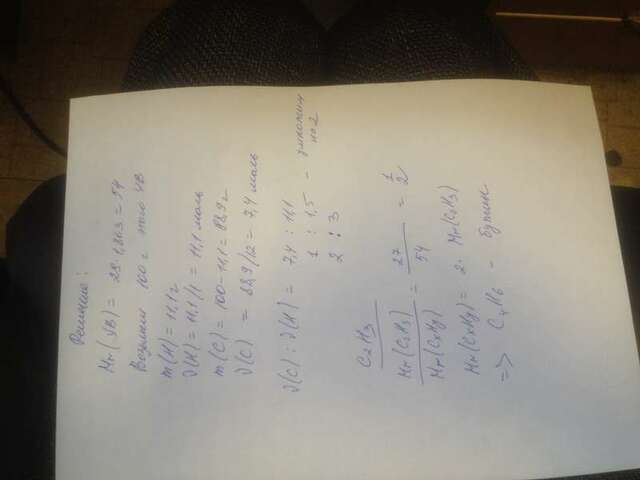 Решение:
Mr(УВ) = 29·1,863 = 54
Возьмем 100 г этого УВ
m(H) = 11,1 г
ν(H) = 11,1/1 = 11,1 моль
m(C) = 100-11,1 = 88,9 г
ν(C) = 88,9/12 = 7,4 моль
ν(C) : ν(H) = 7,4 : 11,1
1 : 1,5 - умножим на 2
2 : 3
C2H3
Mr(C2H3) / Mr(CxHy) = 27/54 = 1/2
Mr(CxHy) = 2· Mr(C2H3)
=> C4H6 - бутин